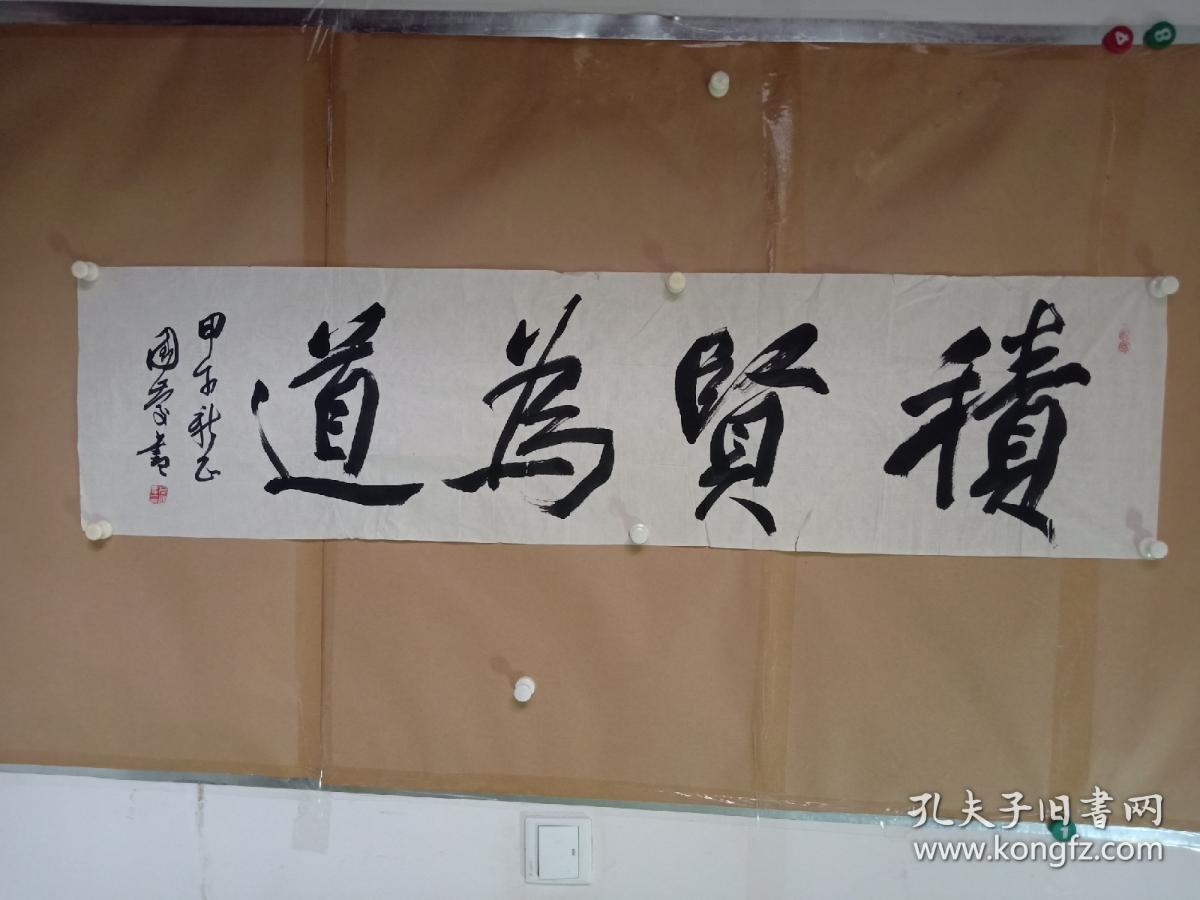 積賢為道
甲午新正
國慶書
孔夫子旧書网
www.kongfz.com
4
8
1